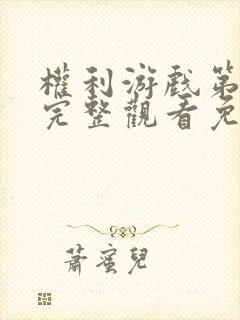 權利游戲第
完整觀看免
蕭蜜兒